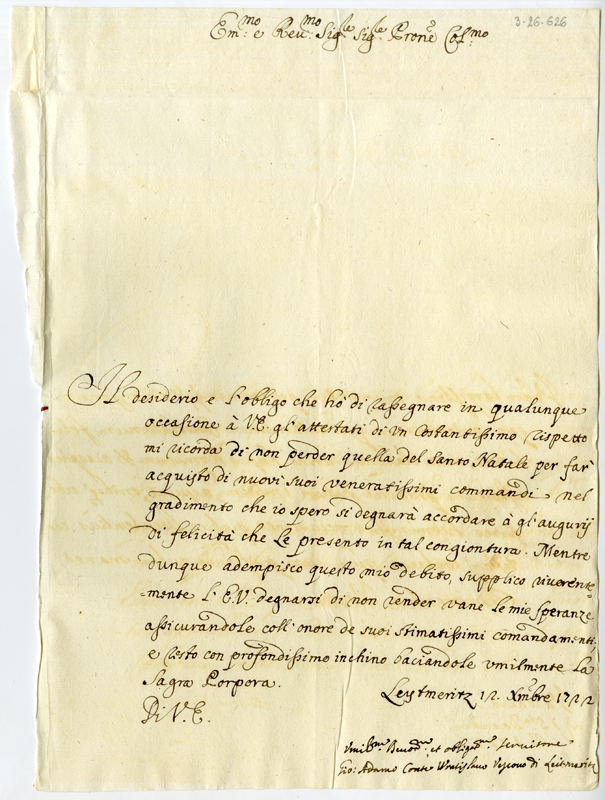 3-26-626
Em:mo e Reu:mo Sig:le Sig:le Prone Col:mo
Il desiderio e l'obligo che hò di rassegnare in qualunque
occasione à V.E. gl'attestati di un Costantissimo rispetto
mi ricorda di non perder quella del Santo Natale per far
acquisto di nuovi suoi veneratissimi commandi nel
gradimento che io spero si degnarà accordare à gl'augurij
di felicità che Le presento in tal congiontura. Mentre
dunque adempisco questo mio debito, supplico riverente=
=mente l'E.V. degnarsi di non render vane le mie speranze
assicurandole coll'onore de suoi stimatissimi comandamenti,
e resto con profondissimo inchino baciandole umilmente la
Sagra Porpora.
Leytmeritz 12. Xmbre 1722
Di V.E.
Umil:mo Diuot:mo et oblig:mo seruitore
Gio: Adamo Conte Wratislau Vescouo di Leitmeritz